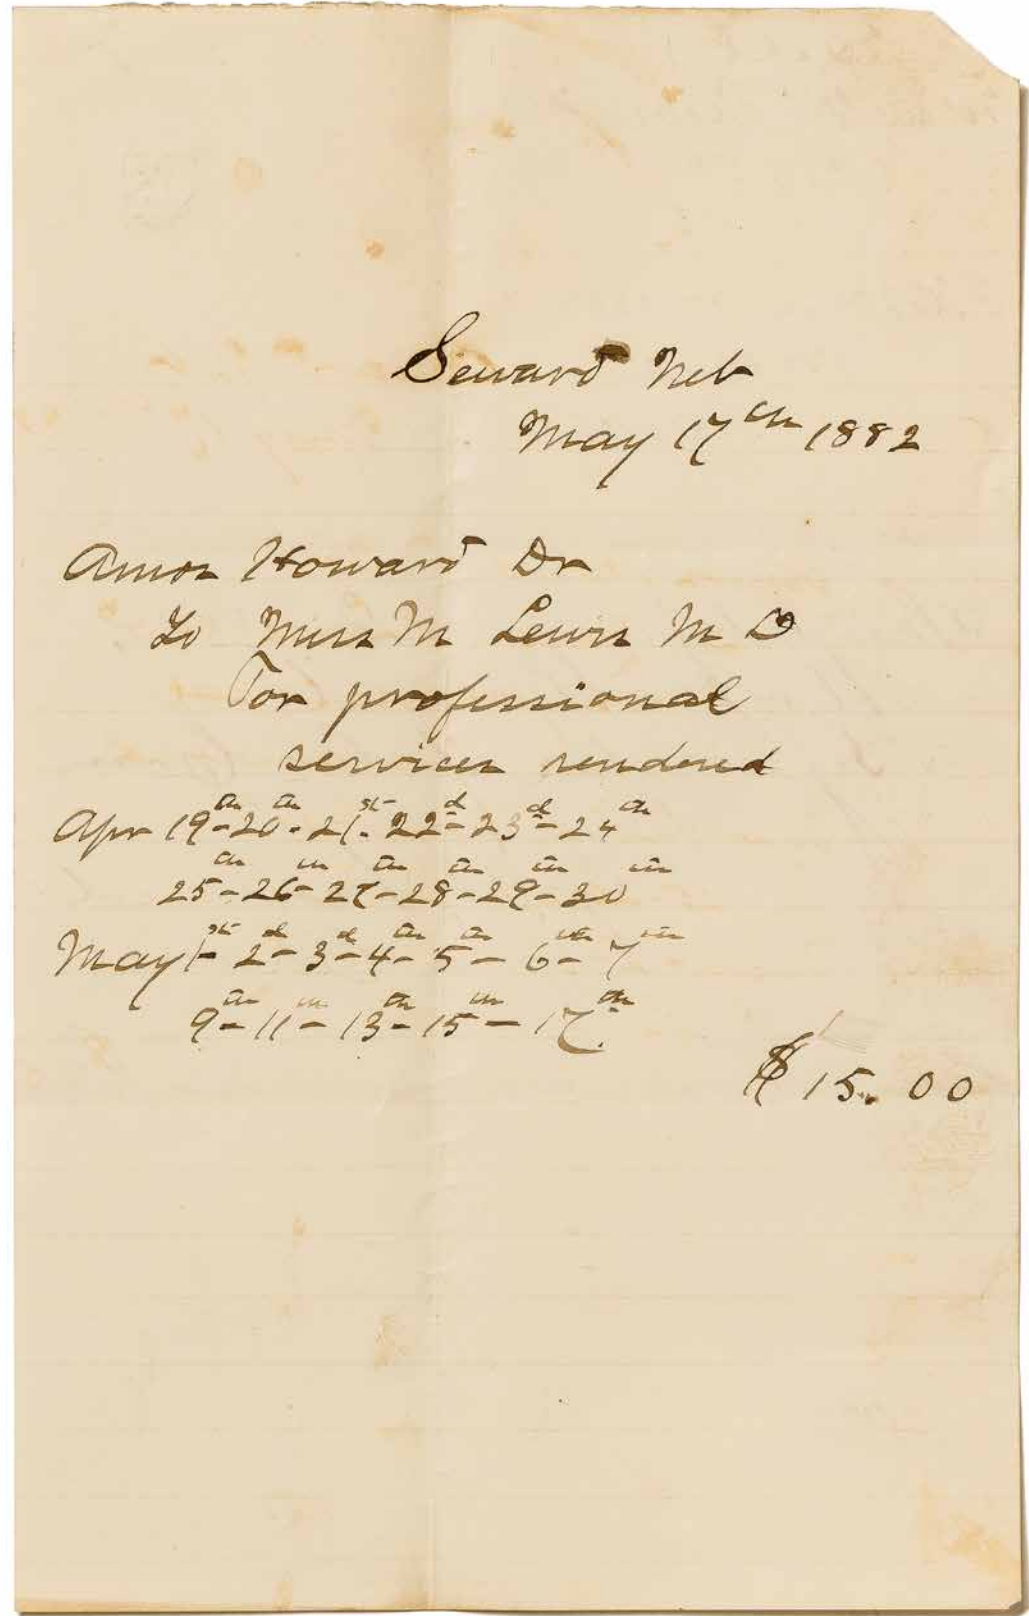 Seward Neb
May 17th 1882
Amos Howard Dr
To Miss M Lewis M D
For professional
services rendered
Apr 19th-20th-21st-22d-23d-24th
25th-26th-27th-28th-29th-30th
May 1st-2d-3d-4th-5th-6th-7th
9th-11th-13th-15th-17th.
$15.00